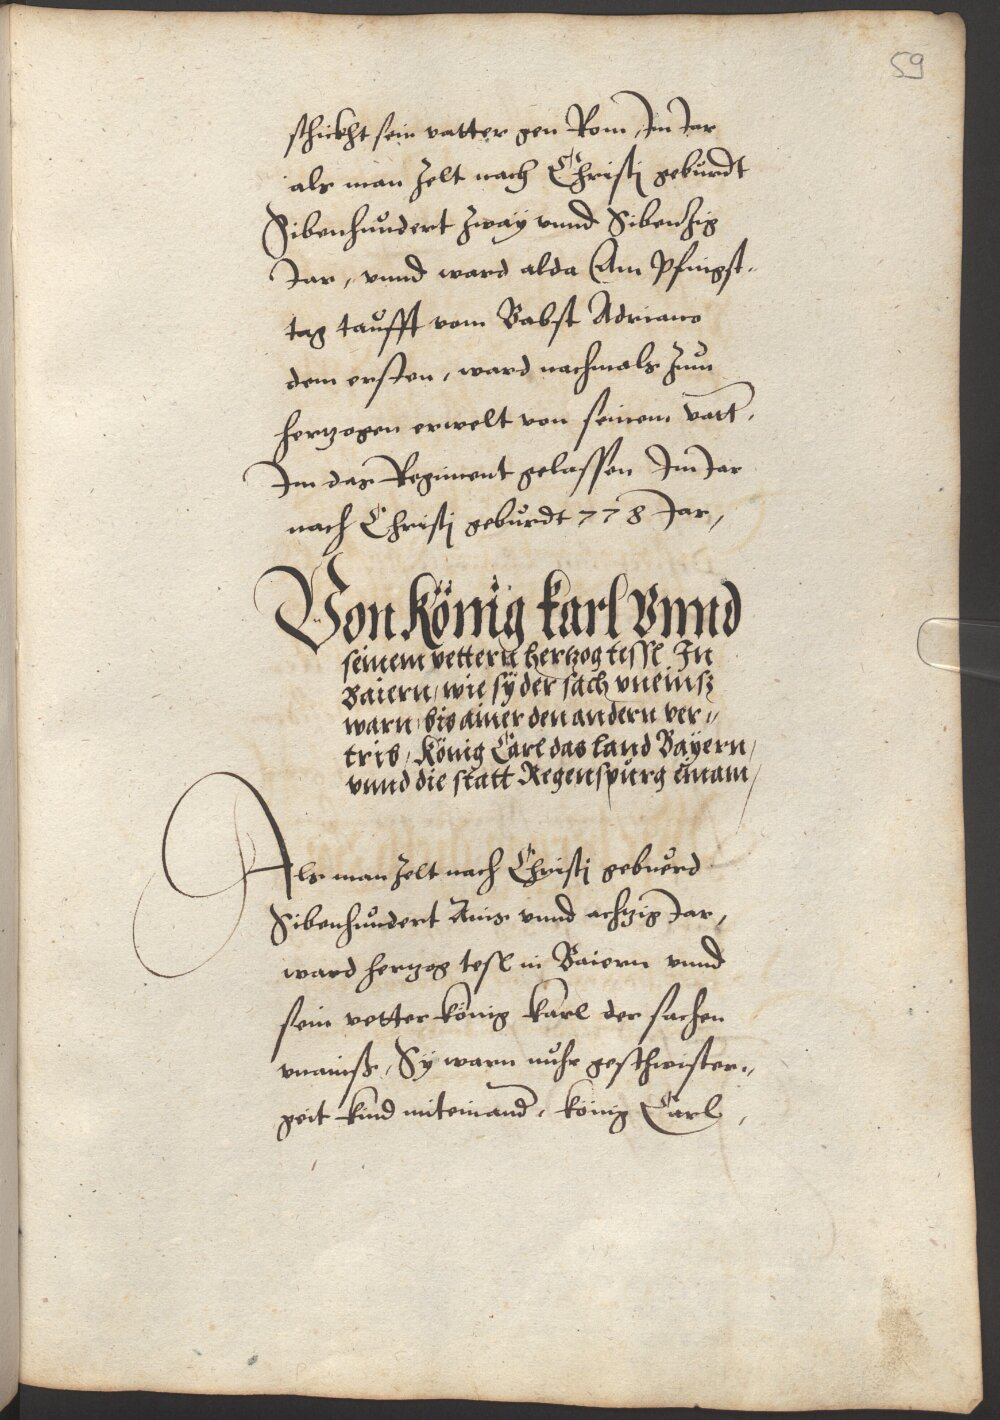 59
schickht sein vatter gen Rom, Im Jar
als man zelt nach Christj gebůrdt
Sibenhůndert zway vnnd Sibenzig
Jar, vnnd ward alda Am Pfingst„
tag taůfft vom Babst Adriano
dem ersten, ward nachmals zum
hertzogen erwelt von seinem vatt.
Im das Regiment gelassen Im Jar
nach Christj gebůrdt 778 Jar,
Von König karl Vnnd
seinem vettern hertzog tessl In
Baiern, wie sÿ der sach vneinsz
warn, bis ainer den andern ver„
trib, König Carl das land Bayern,
vnnd die statt Regenspůrg einam,
Als man zelt nach Christj gebuerd
Sibenhůndert Ains vnnd achtzig Jar,
ward hertzog tesl in Baiern vnnd
sein vetter könig karl der sachen
vnainß, Sy warn nůhr geschwister„
geit kind miteinand, könig Carl,